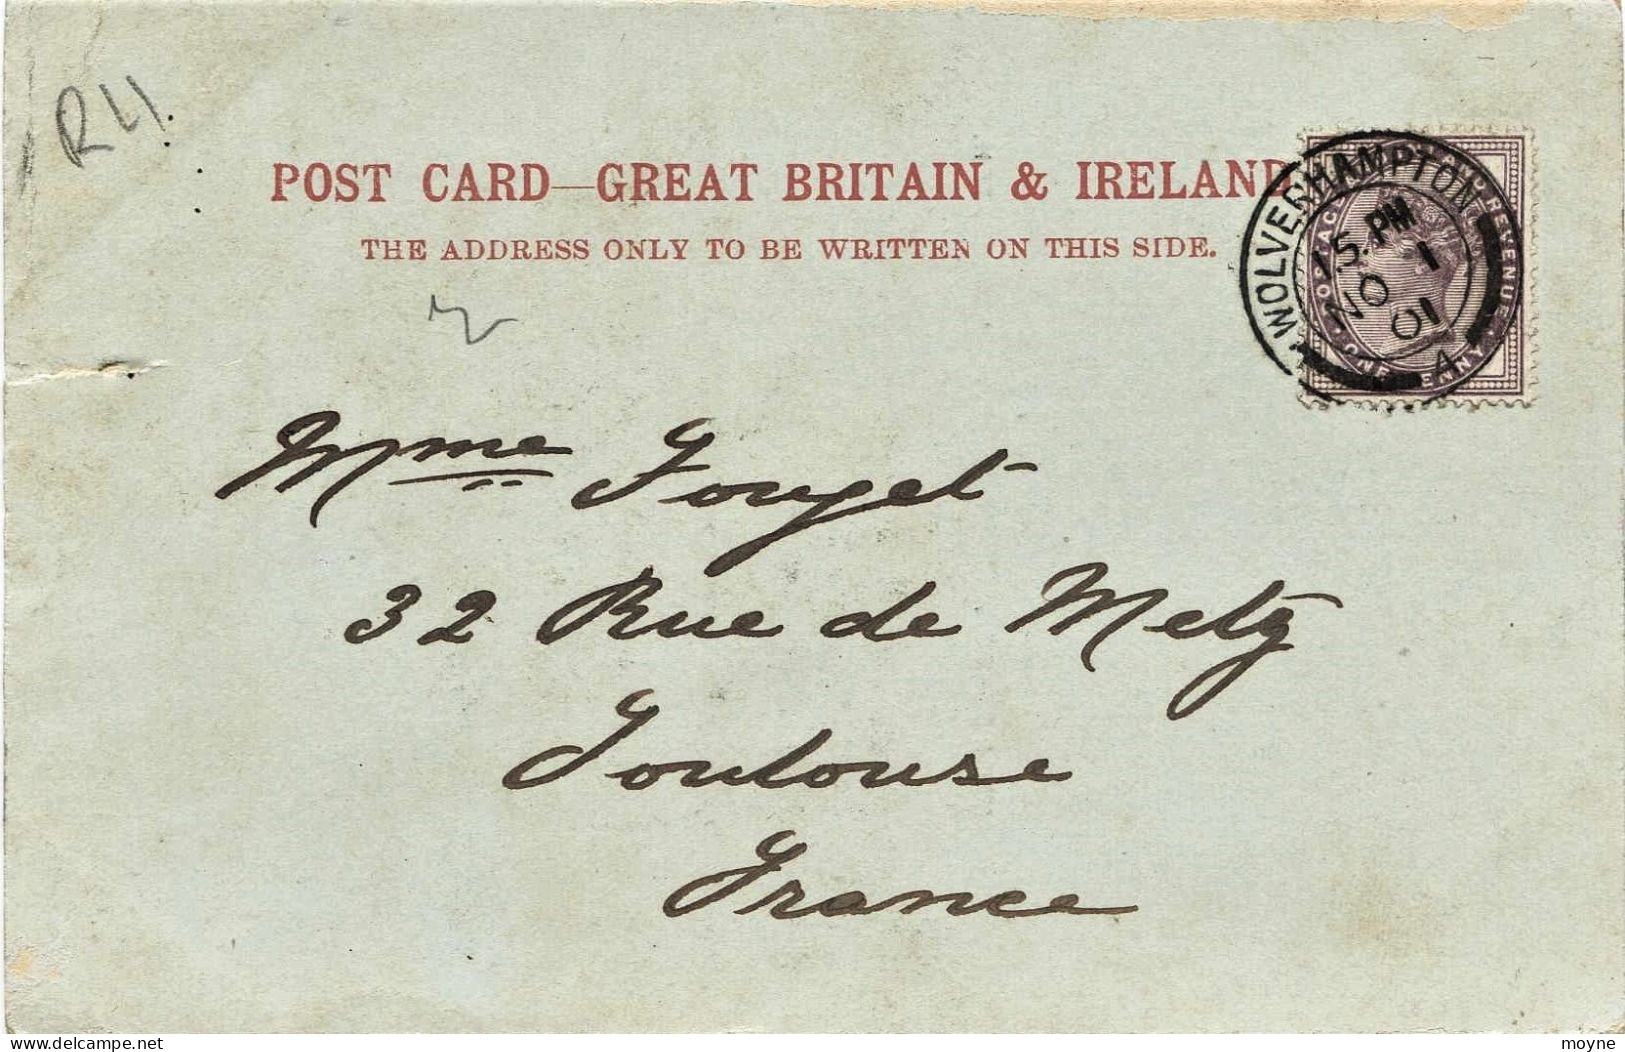 R LI.
POST CARD—GREAT BRITAIN & IRELAND
THE ADDRESS ONLY TO BE WRITTEN ON THIS SIDE.
WOLVERHAMPTON
PM
NO 1
01
A
POSTAGE AND REVENUE
ONE PENNY
Mme Fouget
32 Rue de Metz
Toulouse
France
Delcampe.net
moyne